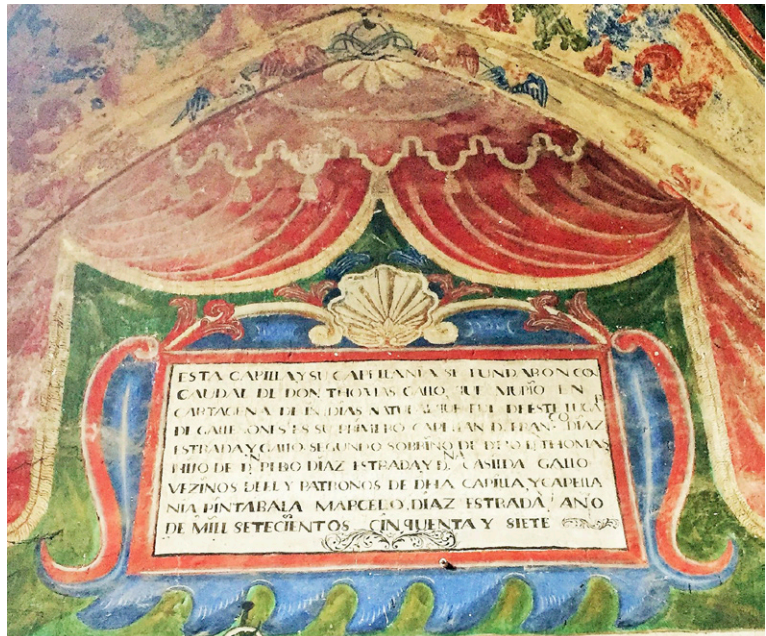 ESTA CAPILLA Y SU CAPELLANIA SE FUNDARON CON
CAUDAL DE DON THOMAS GALLO, QUE MURIO EN
CARTAGENA DE INDIAS NATURAL QUE FUE DE ESTE LUGAR
DE GALLEJONES ES SU PRIMERO CAPELLAN D. FRANCO DIAZ
ESTRADA Y GALLO, SEGUNDO SOBRINO DE DHO D. THOMAS
HIJO DE DN PEDRO DIAZ ESTRADA Y DNA CASILDA GALLO
VEZINOS DEEL Y PATRONOS DE DHA CAPILLA, Y CAPELLA
NIA, PINTABALA MARCELO, DIAZ ESTRADA, AÑO
DE MILL SETECIENTOS CINQUENTA Y SIETE